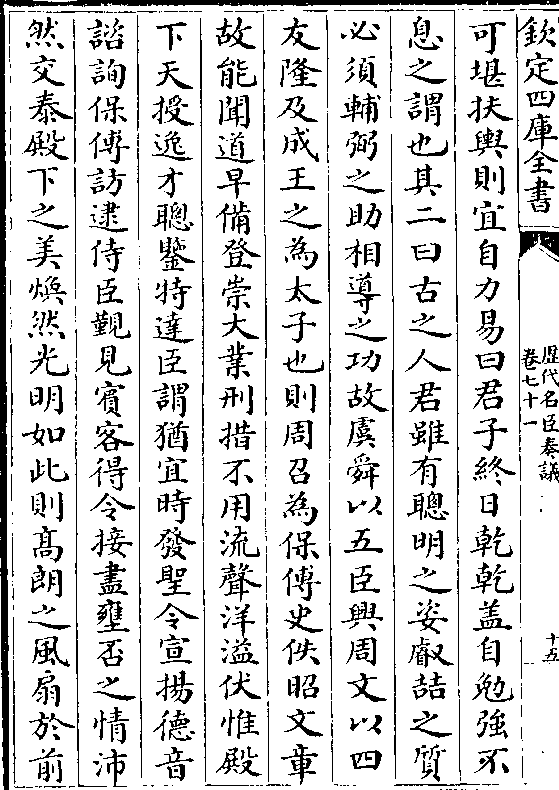 欽定四庫全書
歷代名臣奏議
卷七十一
十五
可堪扶輿則宜自力易曰君子終日乾乾盖自勉強不
息之謂也其二曰古之人君雖有聰明之姿叡喆之質
必須輔弼之助相導之功故虞舜以五臣興周文以四
友隆及成王之為太子也則周召為保傅史佚昭文章
故能聞道早備登崇大業刑措不用流聲洋溢伏惟殿
下天授逸才聰鑒特達臣謂猶宜時發聖令宣揚德音
諮詢保傅訪逮侍臣觀見賓客得令接盡壅否之情沛
然交泰殿下之美煥然光明如此則髙朗之風扇於前